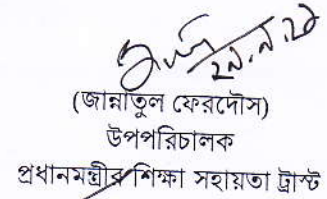 (জান্নাতুল ফেরদৌস)
উপপরিচালক
প্রধানমন্ত্রীর শিক্ষা সহায়তা ট্রাস্ট